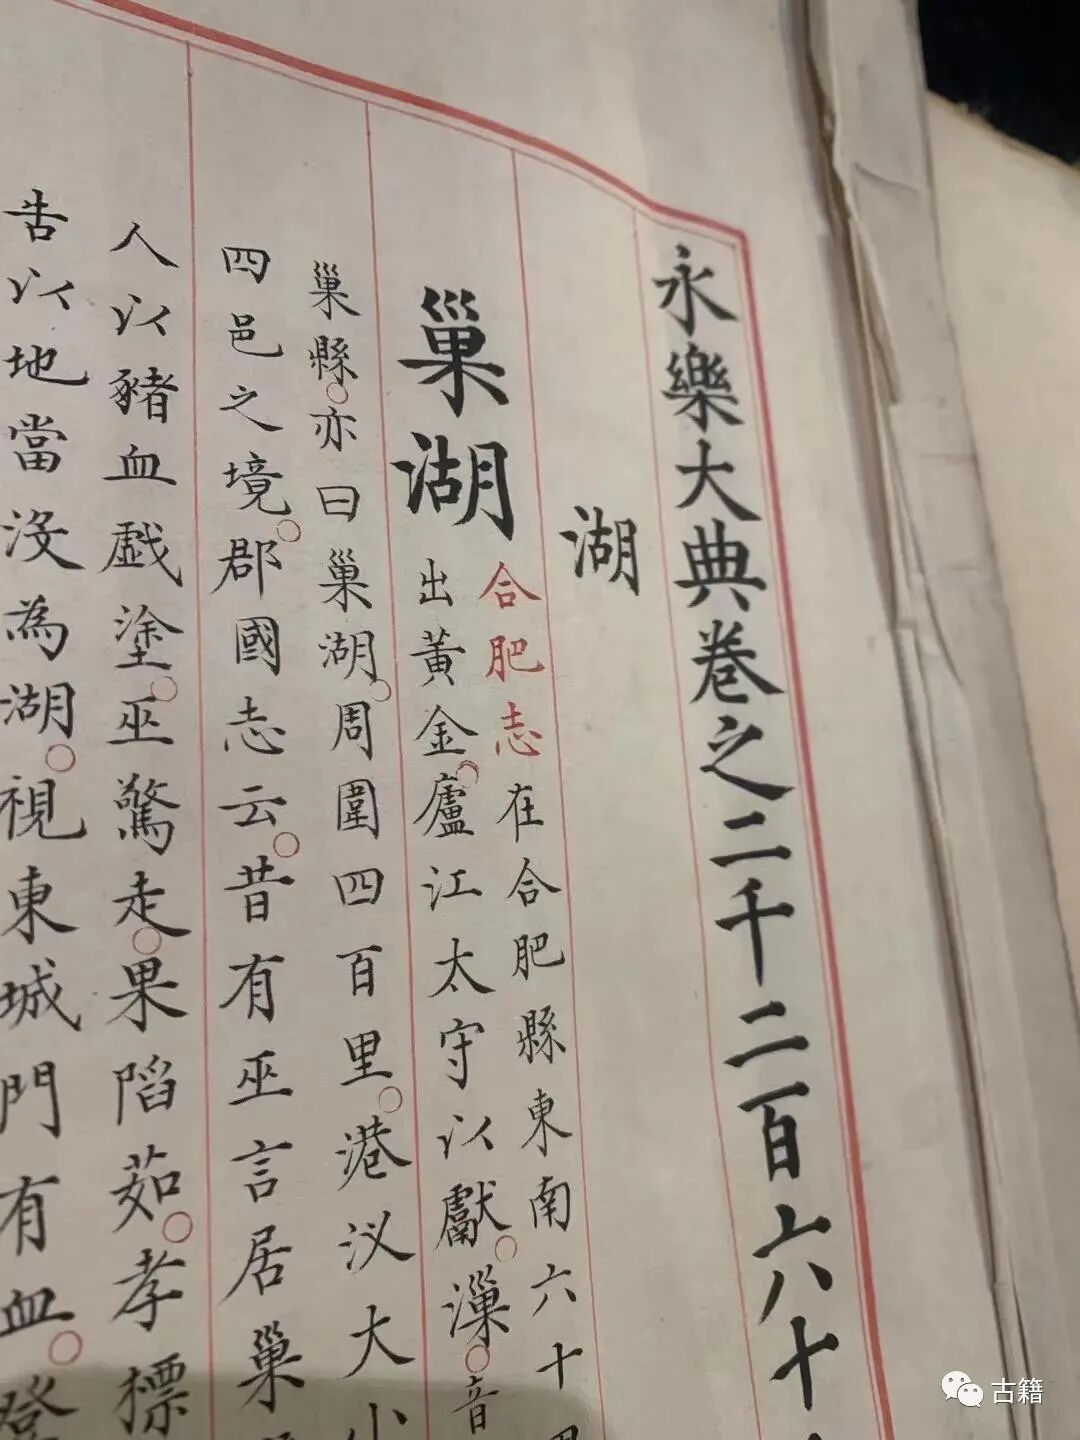 永樂大典卷之二千二百六十
湖
巢湖
合肥志在合肥縣東南六十
出黃金。廬江太守以獻。漅。音
巢縣。亦曰巢湖。周圍四百里。港汊大小
四邑之境。郡國志云。昔有巫言居巢
人以豬血戲塗。巫驚走。果陷茹。孝標
告以地當沒為湖。視東城門有血。登
古籍